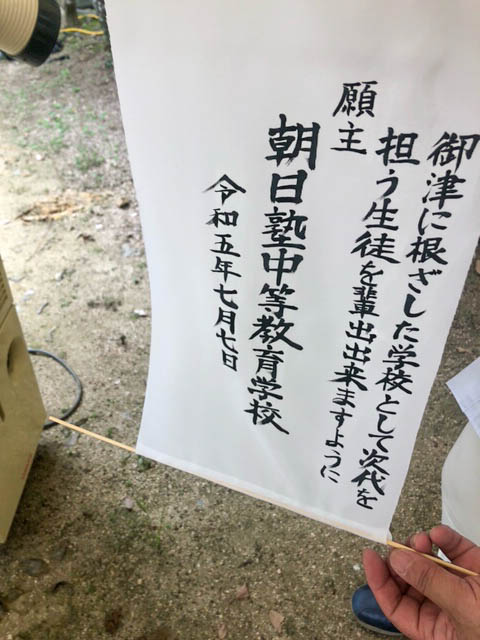 御津に根ざした学校として次代を
担う生徒を輩出出来ますように
願主
朝日塾中等教育学校
令和五年七月七日